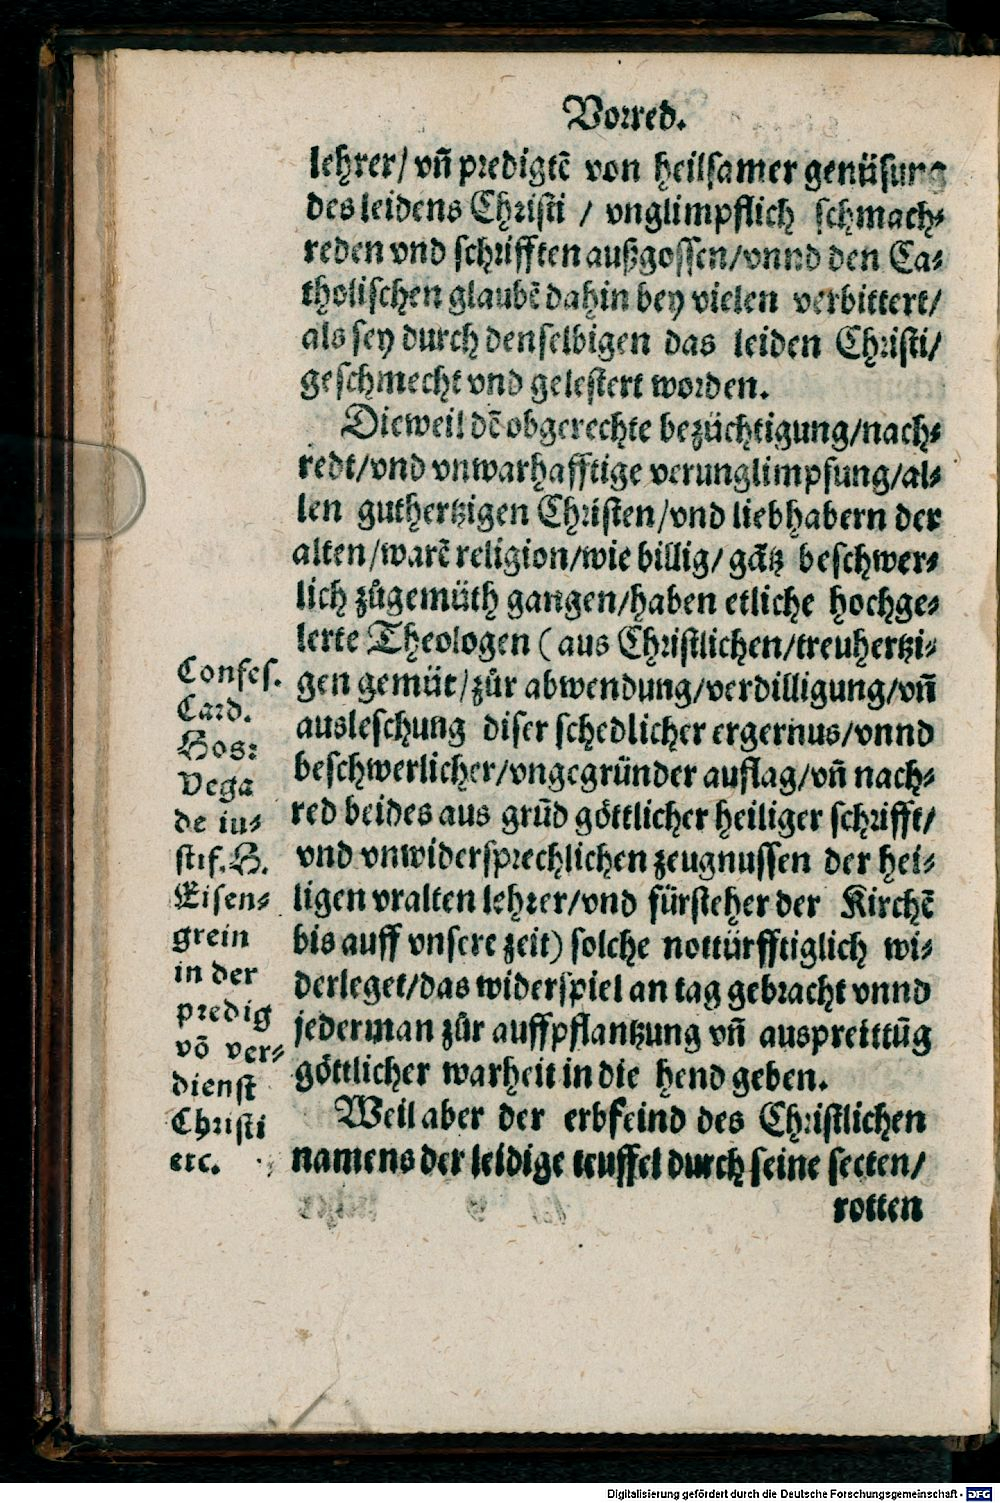 Vorred.
lehrer/ vn̄ predigtẽ von heilsamer genüsung
des leidens Christi / vnglimpflich schmach-
reden vnd schrifften außgossen/vnnd den Ca-
tholischen glaubẽ dahin bey vielen verbittert/
als sey durch denselbigen das leiden Christi/
geschmecht vnd gelestert worden.
Dieweil dẽ obgerechte bezüchtigung/nach-
redt/vnd vnwarhafftige verunglimpfung/al-
len guthertzigen Christen/vnd liebhabern der
alten/warẽ religion/wie billig/ gãtz beschwer-
lich zůgemüth gangen/haben etliche hochge-
lerte Theologen (aus Christlichen/treuhertzi-
gen gemüt/zůr abwendung/verdilligung/vn̄
ausleschung diser schedlicher ergernus/vnnd
beschwerlicher/vngegründer auflag/vn̄ nach-
red beides aus grũd göttlicher heiliger schrifft/
vnd vnwidersprechlichen zeugnussen der hei-
ligen vralten lehrer/vnd fürsteher der Kirchẽ
bis auff vnsere zeit) solche nottürfftiglich wi-
derleget/das widerspiel an tag gebracht vnnd
jederman zůr auffpflantzung vn̄ auspreittũg
göttlicher warheit in die hend geben.
Weil aber der erbfeind des Christlichen
namens der leidige teuffel durch seine secten/
rotten
Confes.
Card.
Hos:
Vega
de iu-
stif. H.
Eisen-
grein
in der
predig
võ ver-
dienst
Christi
etc.
Digitalisierung gefördert durch die Deutsche Forschungsgemeinschaft - DFG